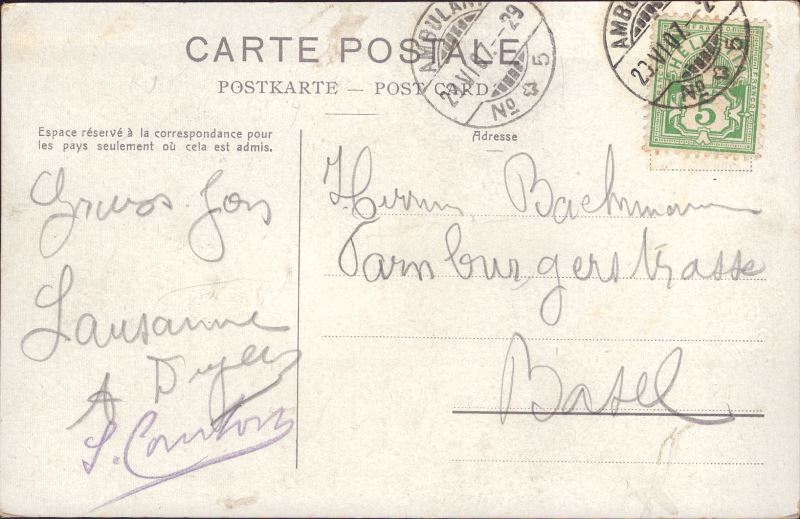 CARTE POSTALE
POSTKARTE — POST CARD
AMBULANT
23.VI.07.–29
No 5
AMBU
23.VI.07.–2
No 5
HELVETIA
5
FRANCO
Espace réservé à la correspondance pour
les pays seulement où cela est admis.
Adresse
Gruss
Lausanne
A
Herrn Bachmann
Farnsburgerstrasse
Basel